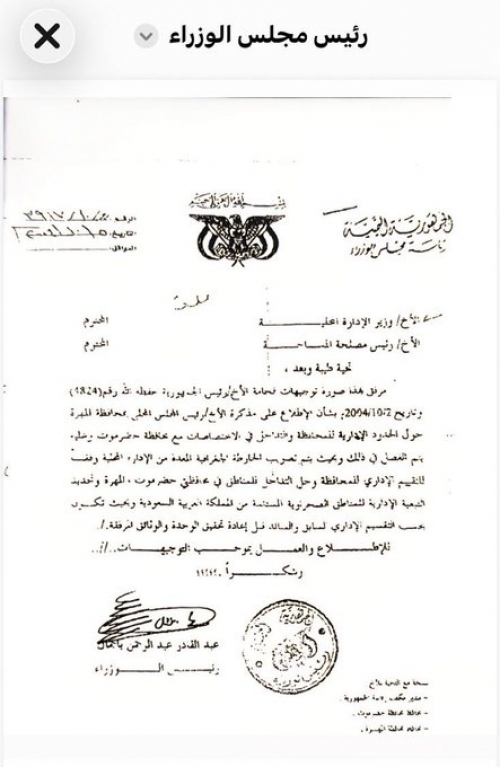 رئيس مجلس الوزراء
الجمهورية اليمنية
رئاسة مجلس الوزراء
الرقم:
تاريخ:
المرافق:
الأخ/ وزير الإدارة المحلية المحترم
الأخ/ رئيس مصلحة المساحة المحترم
تحية طيبة وبعد ،
مرفق بهذا صورة توجيهات فخامة الأخ/رئيس الجمهورية حفظه الله رقم(4824)
وتاريخ 2004/10/2م بشأن الإطلاع على مذكرة الأخ/رئيس المجلس المحلي بمحافظة المهرة
حول الحدود الإدارية للمحافظة والتداخل في الاختصاصات مع محافظة حضرموت
يتم الفصل في ذلك وبحيث يتم تصويب الخارطة الجغرافية المعدة من الإدارة المحلية وفقاً
للتقييم الإداري للمحافظة وحل التداخل للمناطق في محافظتي حضرموت، المهرة وتحديد
التبعية الإدارية للمناطق الصحراوية المستلمة من المملكة العربية السعودية وبحيث تكون
بحسب التقسيم الإداري السابق والسائد قبل إعادة تحقيق الوحدة والوثائق المرفقة./
للإطلاع والعمل بموجب التوجيهات..//..
وشكراً
عبد القادر عبد الرحمن باجمال
رئيس الوزراء
نسخة مع التحية للأخ
- مدير مكتب رئاسة الجمهورية.
- محافظ محافظة حضرموت.
- محافظ محافظة المهرة.